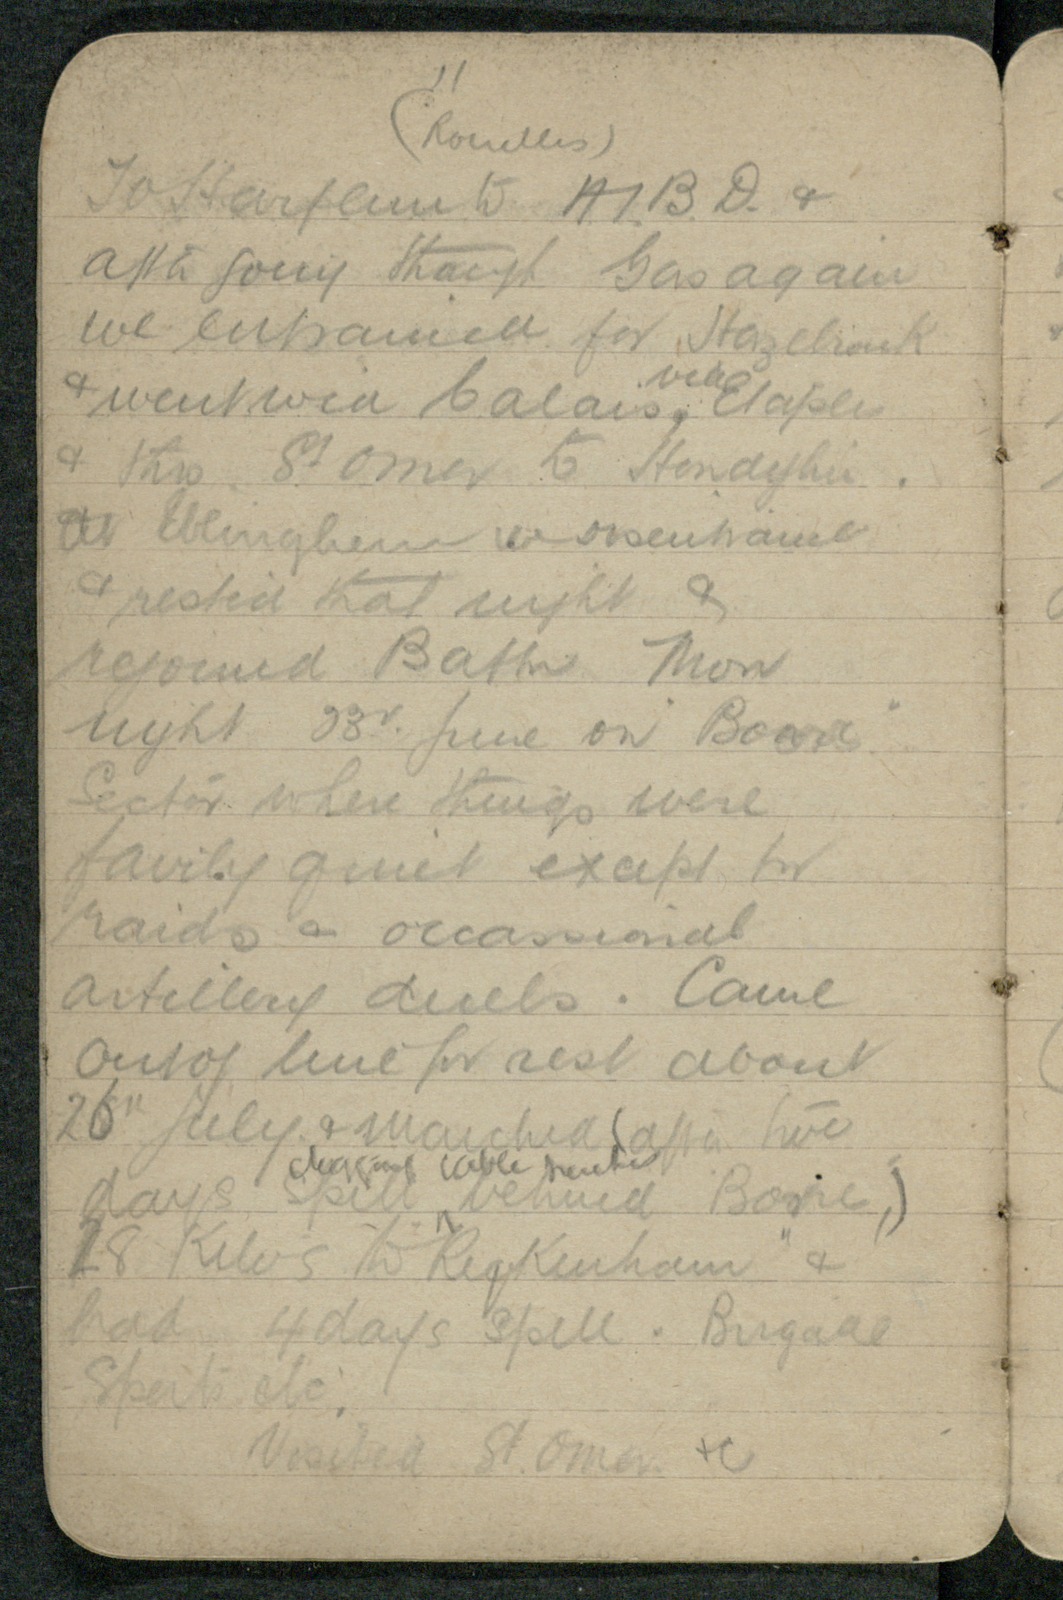 11
(Rouelles)
To Harfleur to A.I.B.D. &
after going through Gas again
we entrained for Hazebrouk
& went via Calais, via Etaples
& thro St Omer to
At Eblinghem we disentrained
& rested that night &
rejoined Battn Mon
night 23r. June on "Boore"
Sector where things were
fairily quiet except for
raids & occassional
artillery duels. Came
out of line for rest about
26" July & marched (after two
days spell digging cable trenches behind Borre,)
18 Kilos to "Reqkenham" &
had 4 days spell. Brigade
Sports etc.
Visited St. Omer &c